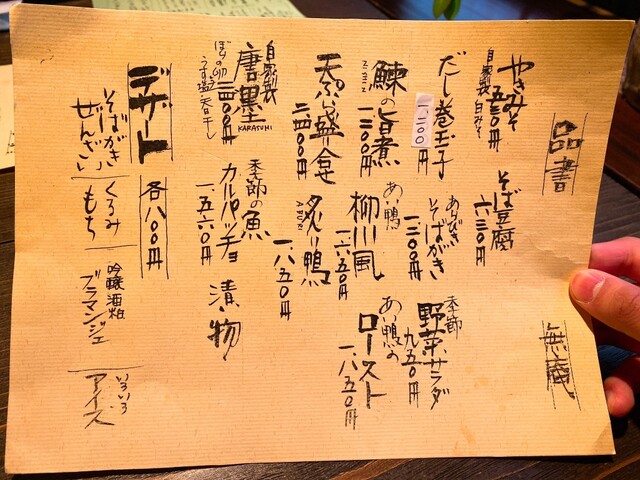 品書
無庵
やきみそ
五五〇円
自家製 白みそ
そば豆腐
六三〇円
だし巻玉子
一、二〇〇円
あらびき
そばがき
一、三〇〇円
季節
野菜サラダ
九五〇円
鰊の旨煮
ニシン
一、三〇〇円
あい鴨
柳川風
一、六五〇円
あい鴨の
ロースト
一、八五〇円
天ぷら盛合せ
二、四〇〇円
炙り鴨
ABURI
一、八五〇円
自家製
唐墨
KARASUMI
ぼらの卵
うす塩・天日干し
二、四〇〇円
季節の魚
カルパッチョ
一、五六〇円
漬物
デザート
各八〇〇円
そばがき
「ぜんざい」
くるみ
もち
吟醸酒粕
ブラマンジェ
いろいろ
アイス